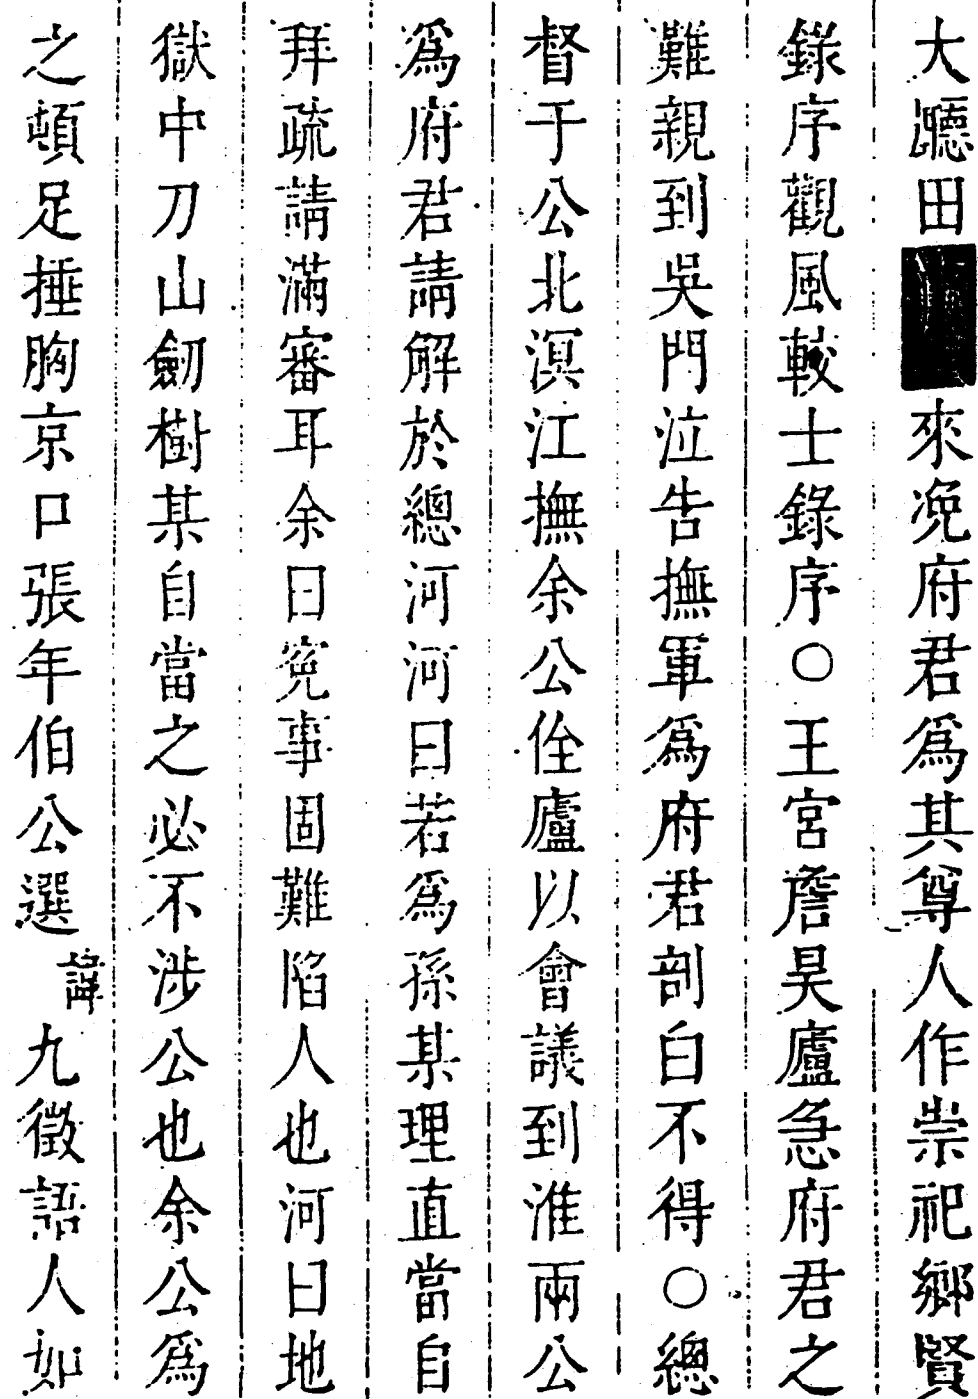 大廳田來浼府君爲其尊人作崇祀鄉賢
錄序觀風較士錄序○王宮詹昊廬急府君之
難親到吳門泣告撫軍爲府君剖白不得○總
督于公北溟江撫余公佺廬以會議到淮兩公
爲府君請解於總河河曰若爲孫某理直當自
拜疏請滿審耳余曰寃事固難陷人也河曰地
獄中刀山劒樹某自當之必不涉公也余公爲
之頓足捶胸京口張年伯公選諱九徵語人如